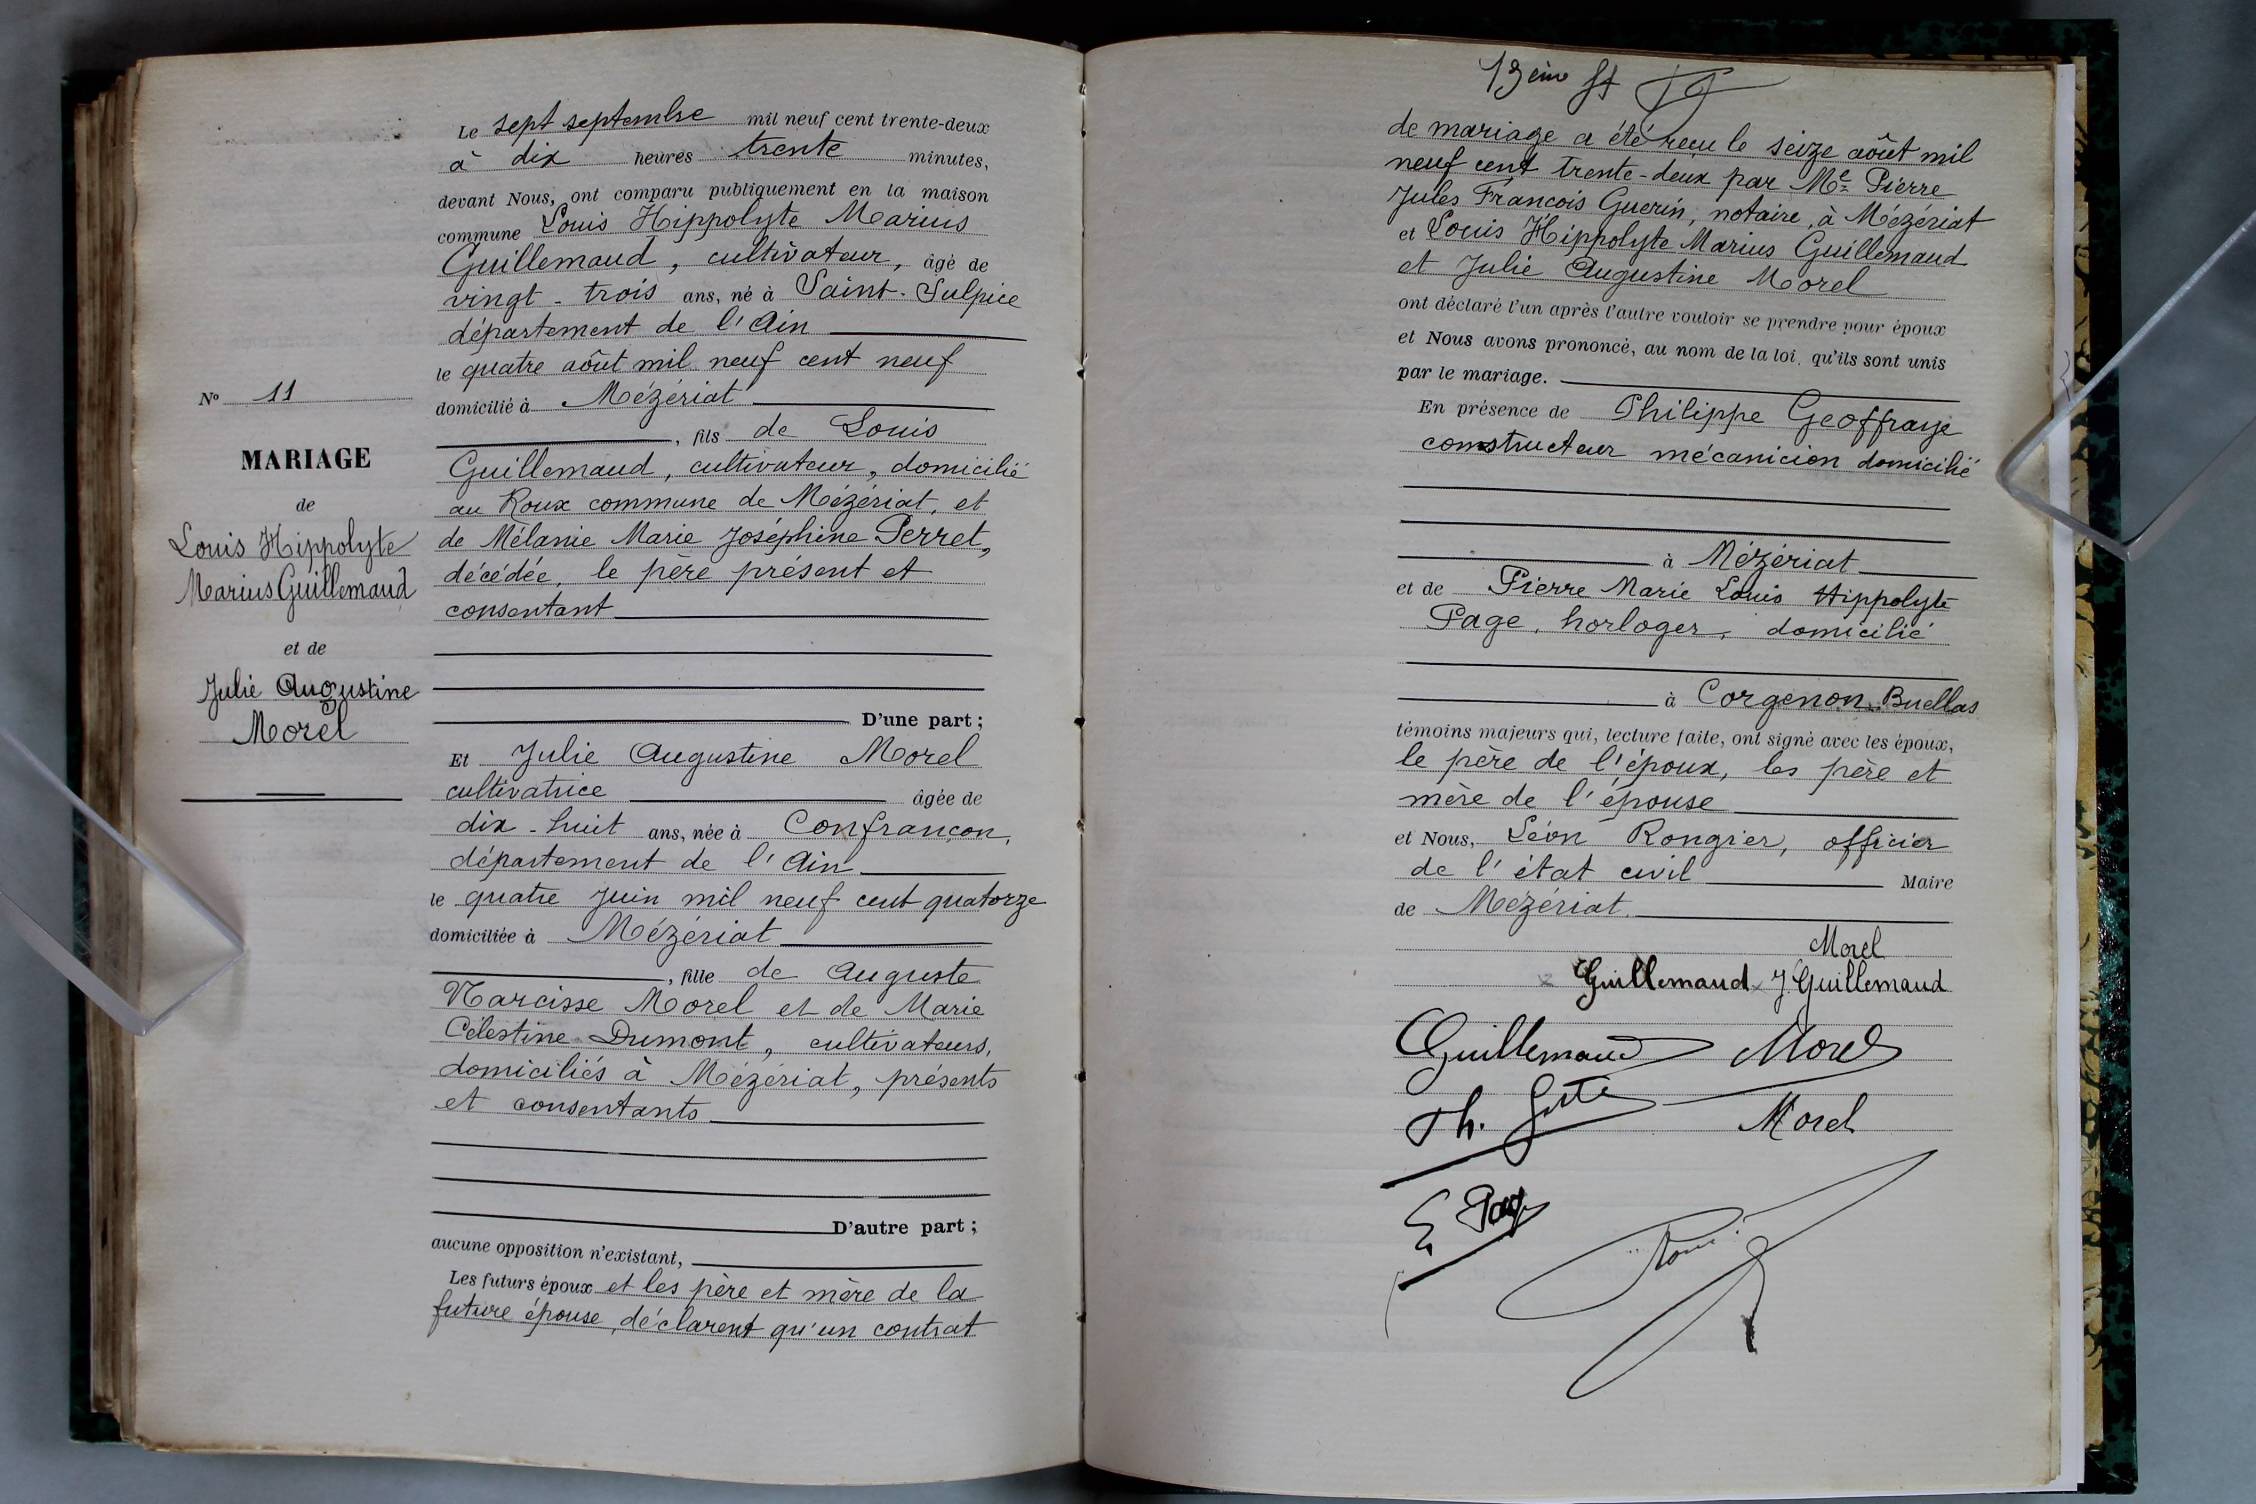 Le sept septembre mil neuf cent trente-deux
à dix heures trente minutes,
devant Nous, ont comparu publiquement en la maison
commune Louis Hippolyte Marius
Guillemaud, cultivateur, âgé de
vingt-trois ans, né à Saint-Sulpice
département de l'Ain
le quatre août mil neuf cent neuf
domicilié à Mézériat
, fils de Louis
Guillemaud, cultivateur, domicilié
au Roux commune de Mézériat, et
de Mélanie Marie Joséphine Perret,
décédée, le père présent et
consentant
D'une part ;
Et Julie Augustine Morel
cultivatrice âgée de
dix-huit ans, née à Confrançon,
département de l'Ain
le quatre Juin mil neuf cent quatorze
domiciliée à Mézériat
, fille de Auguste
Narcisse Morel et de Marie
Célestine Dumont, cultivateurs,
domiciliés à Mézériat, présents
et consentants
D'autre part ;
aucune opposition n'existant,
Les futurs époux et les père et mère de la
future épouse, déclarent qu'un contrat
No 11
MARIAGE
de
Louis Hippolyte
Marius Guillemaud
et de
Julie Augustine
Morel
13ème
de mariage a été reçu le seize août mil
neuf cent trente-deux par Me Pierre
Jules François Guerin, notaire, à Mézériat
et Louis Hippolyte Marius Guillemaud
et Julie Augustine Morel
ont déclaré l'un après l'autre vouloir se prendre pour époux
et Nous avons prononcé, au nom de la loi, qu'ils sont unis
par le mariage.
En présence de Philippe Geoffraye
constructeur mécanicien domicilié
à Mézériat
et de Pierre Marie Louis Hippolyte
Page, horloger, domicilié
à Corgenon Buellas
témoins majeurs qui, lecture faite, ont signé avec les époux,
le père de l'époux, les père et
mère de l'épouse
et Nous, Léon Rongier, officier
de l'état civil Maire
de Mézériat.
Morel
Guillemaud J. Guillemaud
Guillemaud Morel
Ph.
Morel
Page